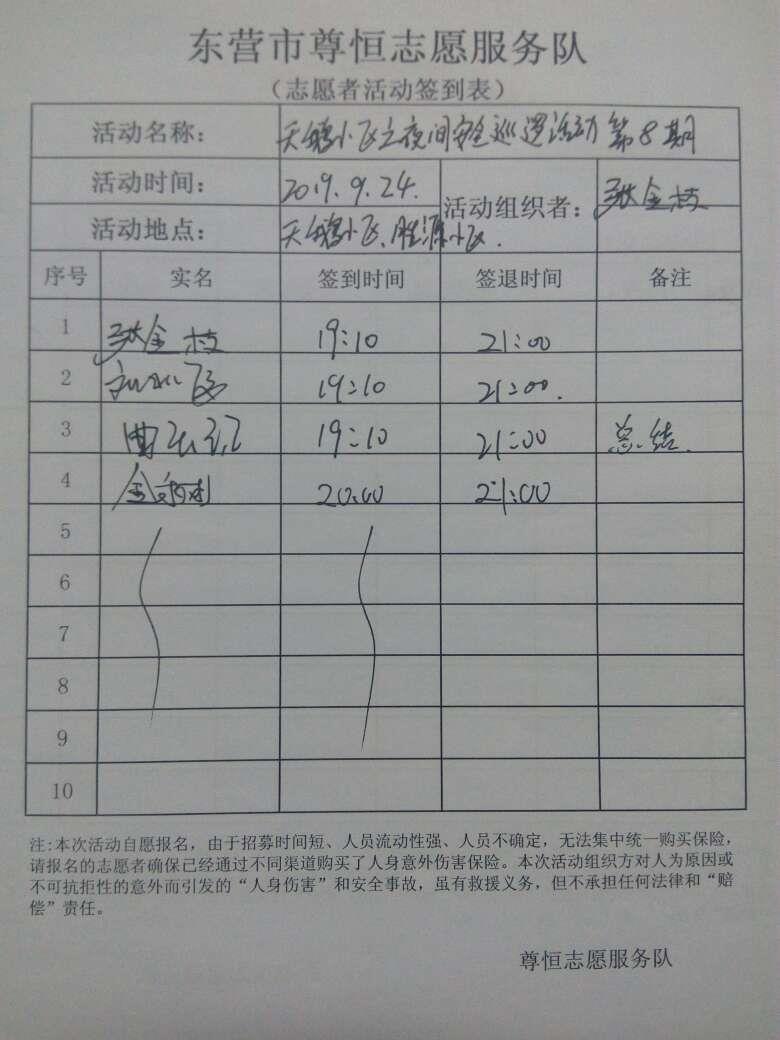 东营市尊恒志愿服务队
(志愿者活动签到表)
活动名称: 天鹅小区夜间安全巡逻活动 第8期
活动时间: 2019.9.24. 活动组织者: 张金枝
活动地点: 天鹅小区、胜源小区.
序号 实名 签到时间 签退时间 备注
1 张金枝 19:10 21:00
2 19:10 21:00.
3 19:10 21:00 总结.
4 20:00 21:00
5
6
7
8
9
10
注:本次活动自愿报名，由于招募时间短、人员流动性强、人员不确定，无法集中统一购买保险，
请报名的志愿者确保已经通过不同渠道购买了人身意外伤害保险。本次活动组织方对人为原因或
不可抗拒性的意外而引发的“人身伤害”和安全事故，虽有救援义务，但不承担任何法律和“赔
偿”责任。
尊恒志愿服务队